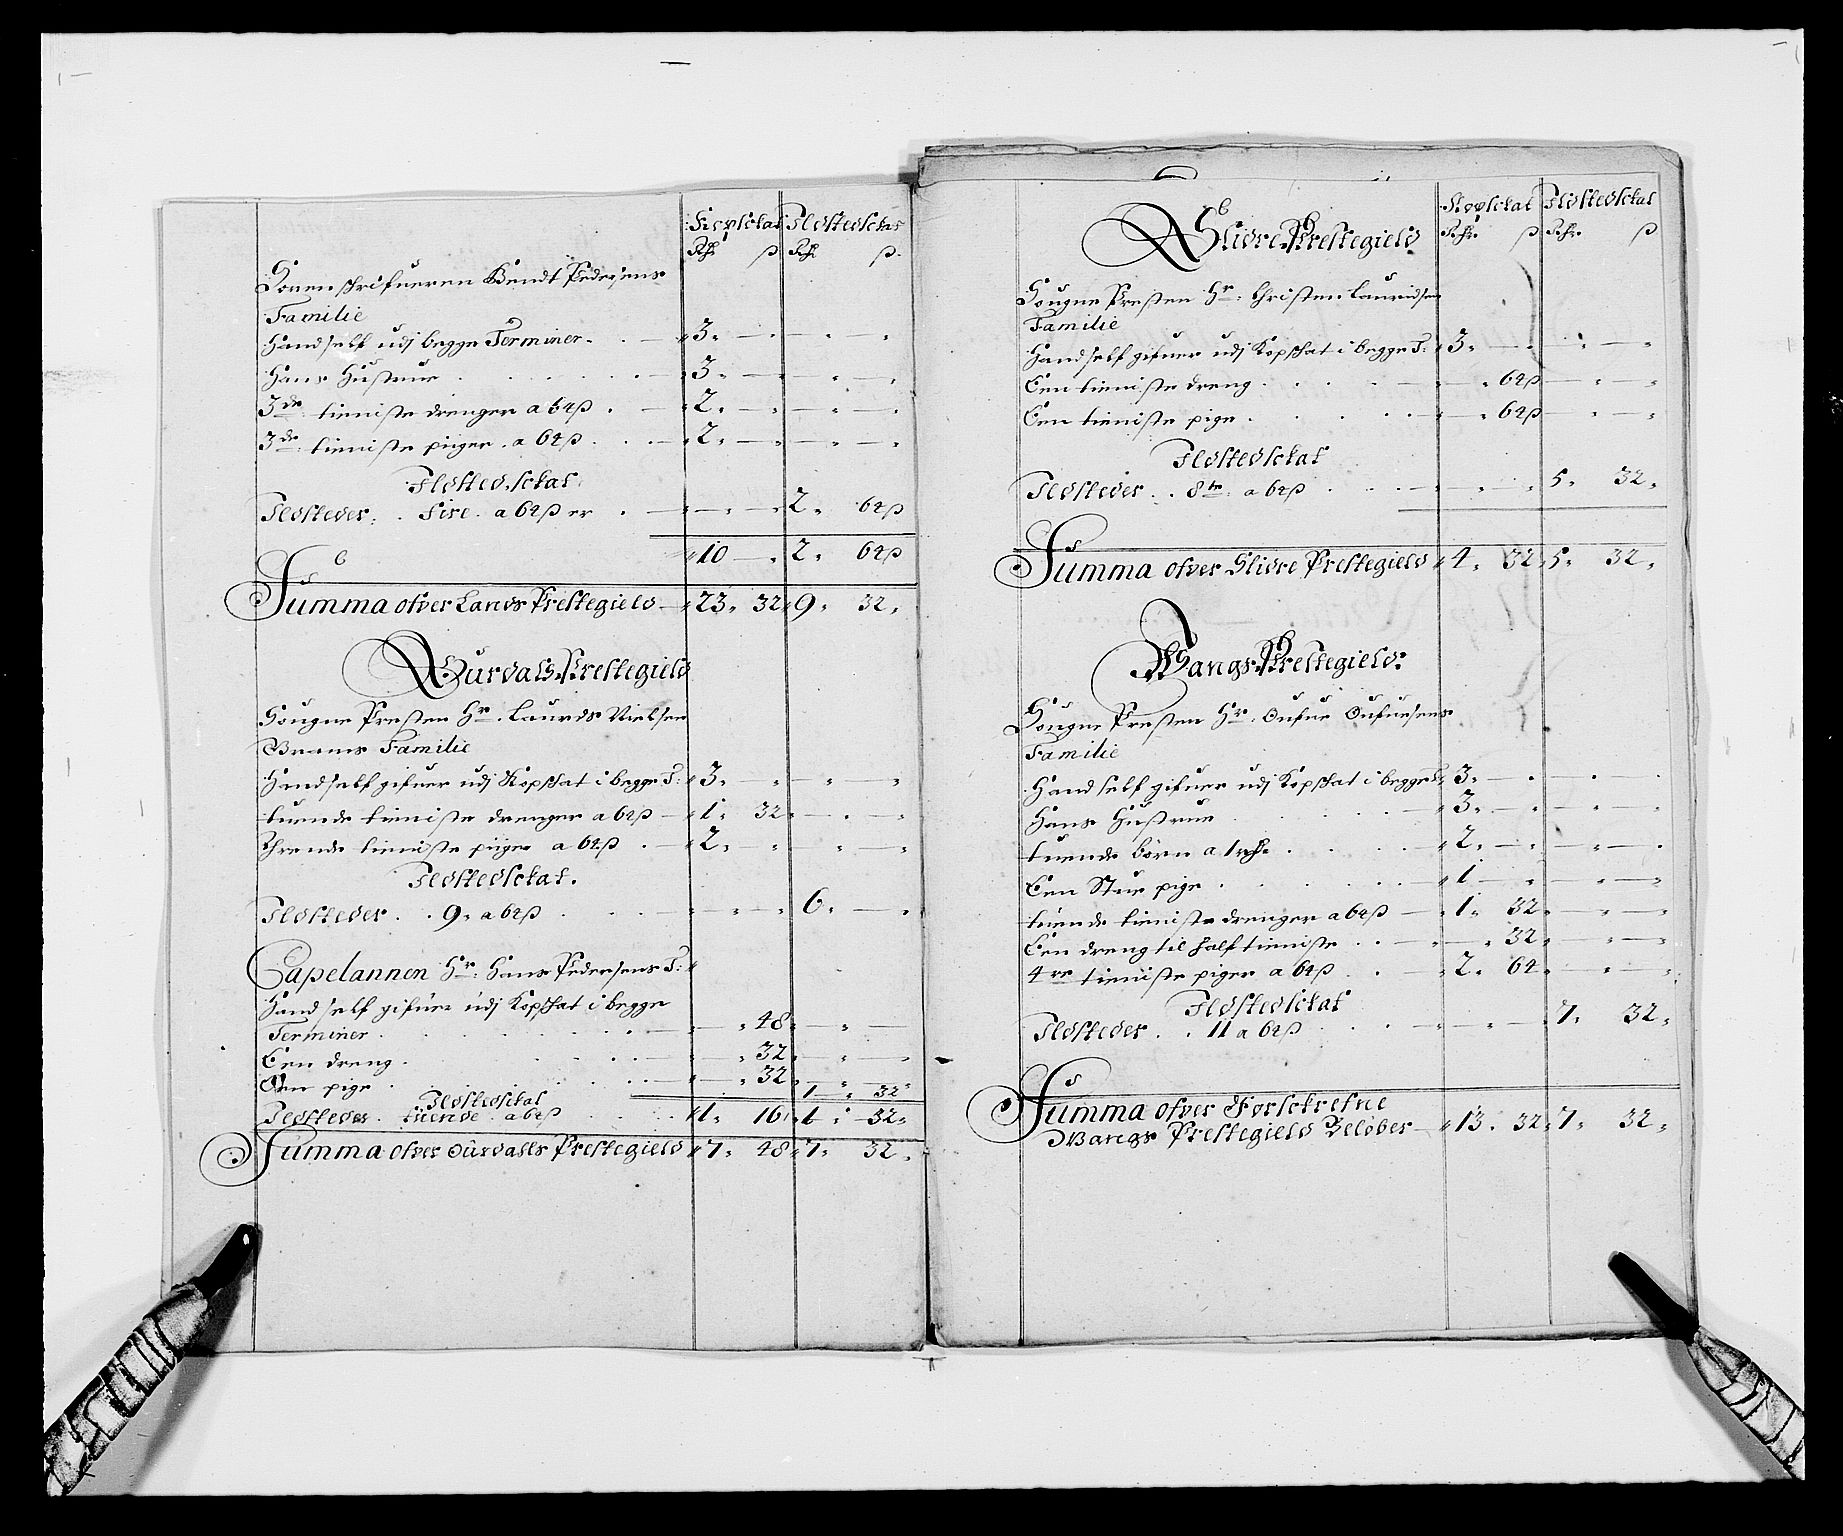 Kopskat Ildstedskat
Rdr ß Rdr ß
Sorenskrifueren Bendt Pedersens
Familie
Hand self udj begge Terminer 3
Hans Hustrue 3
3de tieniste drenger a 64 ß 2
3de tieniste piiger a 64 ß 2
Ildstedskat
Ildsteder fire a 64 ß er 2 64 ß
10 2 64 ß
Summa ofver Lands Prestegield 23 32 9 32
Ourdals Prestegield
Sougne Presten Hr. Laurids Nielsen
Brams Familie
Hand self gifuer udj Kopskat i begge T: 3
tuende tieniste drenger a 64 ß 1 32
Thrende tieniste piiger a 64 ß 2
Ildstedskat.
Ildsteder 9 a 64 ß 6
Capelannen Hr. Hans Pedersens F:
Hand self gifuer udj Kopskat i begge
Terminer 48
Een dreng 32
Een pige 32
Ildstedskat 1 32
Ildsteder tuende a 64 ß 1 16 1 32
Summa ofver Ourdalls Prestegield 7 48 7 32
Kopskat Ildstedskat
Slidre Prestegield Rdr ß Rdr ß
Sougne Presten Hr. Christen Lauridsen
Familie
Hand self gifuer udj Kopskat i begge T: 3
Een tieniste dreng 64 ß
Een tieniste pige 64 ß
Ildstedskat
Ildsteder 8te a 64 ß 5 32
Summa ofver Slidre Prestegield 4 32 5 32
Wangs Prestegield
Sougne Presten Hr. Oufue Oufuesens
Familie
Hand self gifuer udj Kopskat i begge T: 3
Hans Hustrue 3
tuende börn a 1 rdr 2
Een Stue pige 1
tuende tieniste drenger a 64 ß 1 32
Een dreng til half tieniste 32
4re tieniste piger a 64 ß 2 64
Ildstedskat
Ildsteder 11 a 64 ß 7 32
Summa ofver Forskrefne
Wangs Prestegield Beløber 13 32 7 32